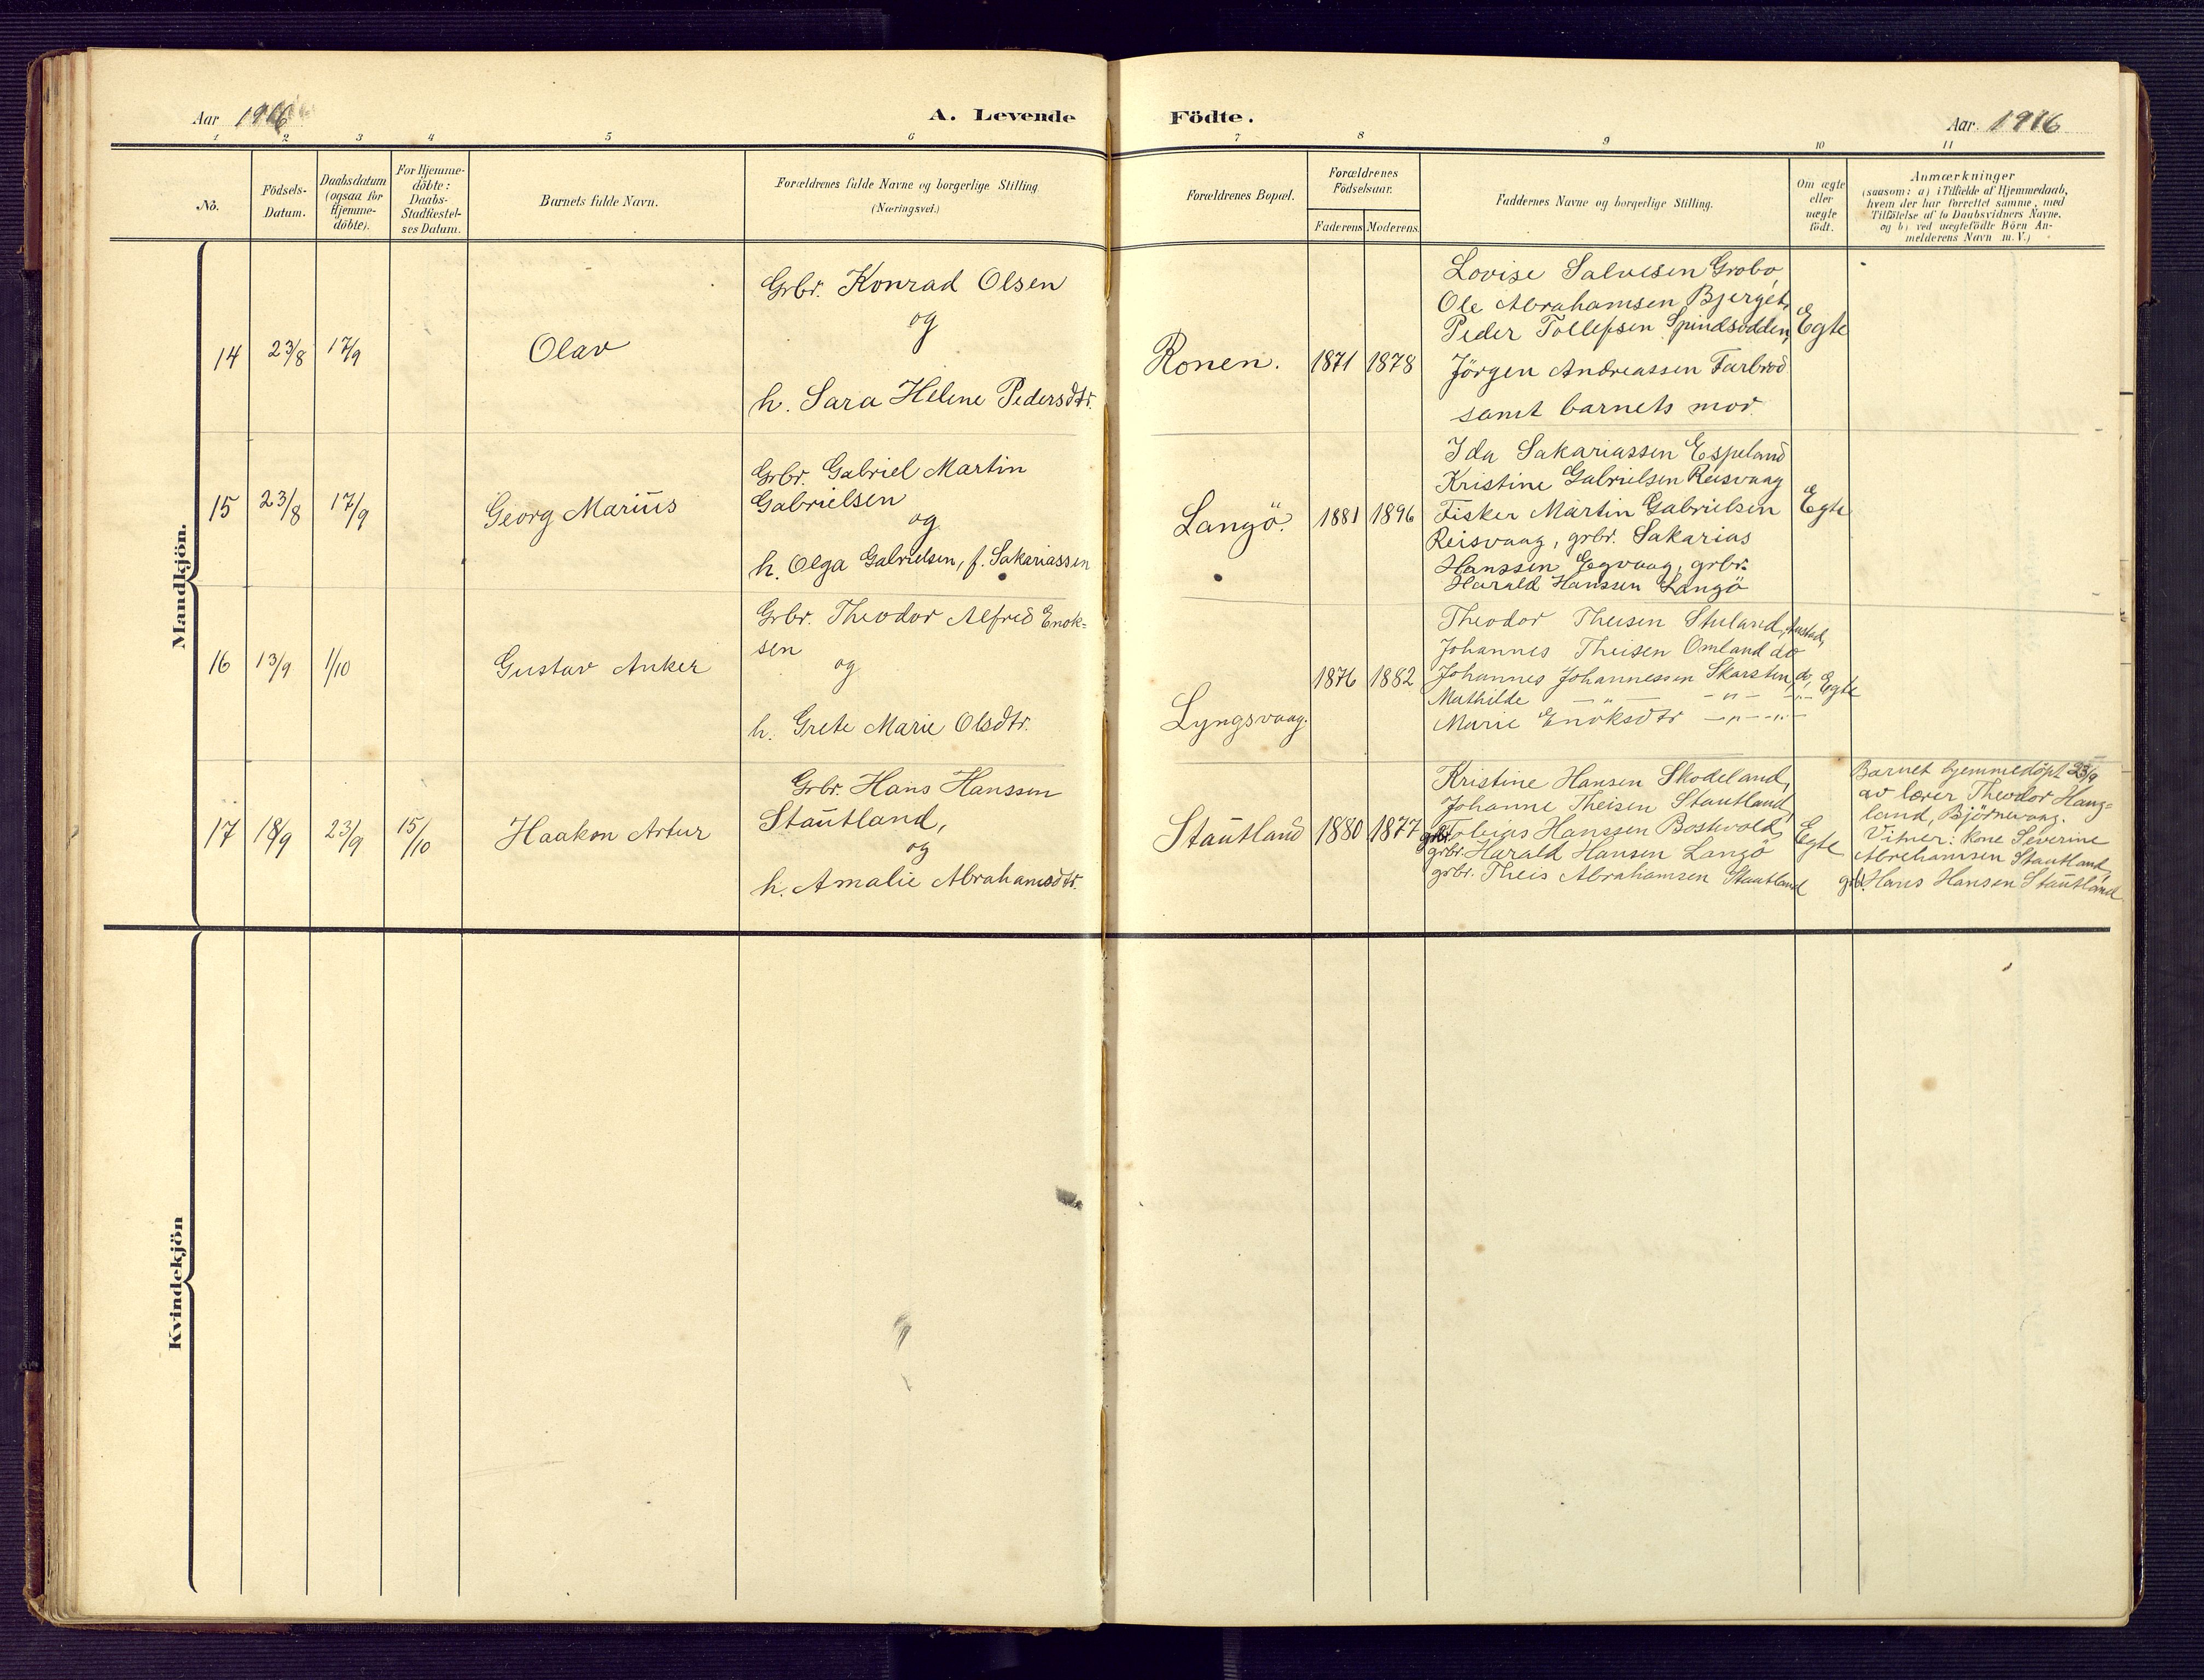 Aar 1916
A. Levende
Födte.
Aar. 1916
1 2 3 4 5 6 7 8 9 10 11
No.
Födsels-
Datum.
Daabsdatum
(ogsaa for
Hjemme-
döbte).
For Hjemme-
döbte:
Daabs-
Stadfæstel-
ses Datum.
Barnets fulde Navn.
Forældrenes fulde Navne og borgerlige Stilling
(Næringsvei.)
Forældrenes Bopæl.
Forældrenes
Födselsaar.
Faderens
Moderens.
Faddernes Navne og borgerlige Stilling.
Om ægte
eller
uægte
födt.
Anmærkninger
(saasom: a) i Tilfælde af Hjemmedaab,
hvem der har forrettet samme, med
Tilföielse af to Daabsvidners Navne.
og b) ved uægtefödte Börn An-
melderens Navn m. V.)
Mandkjön.
14
23/8
17/9
Olav
Grbr. Konrad Olsen
og
h. Sara Helene Pedersdtr.
Ronen.
1871
1878
Lovise Salvesen Grobo
Ole Abrahamsen Bjerget,
Peder Tollefsen Spindsodden,
Jörgen Andreassen Farbrod
samt barnets mor.
Egte
15
23/8
17/9
Georg Marius
Grbr. Gabriel Martin
Gabrielsen
og
h. Olga Gabrielsen, f. Sakariassen
Langö.
1881
1896
Ida Sakariassen Espeland
Kristine Gabrielsen Reisvaag
Fisker Martin Gabrielsen
Reisvaag, grbr. Sakarias
Hanssen Egvaag, grbr.
Harald Hanssen Langö
Egte
16
13/9
1/10
Gustav Anker
Grbr. Theodor Alfred Enok-
sen
og
h. Grete Marie Olsdtr.
Lyngsvaag.
1876
1882
Theodor Theisen Stuland,
Johannes Theisen Omland do
Johannes Johannessen Skarstin, do,
Mathilde — " — — " — — " —
Marie Enoksdtr — " — — " —
Egte
17
18/9
23/9
15/10
Haakon Artur
Grbr. Hans Hanssen
Stautland,
og
h. Amalie Abrahamsdtr.
Stautland
1880
1877
Kristine Hansen Skodeland,
Johanne Theisen Stautland,
grbr. Tobias Hanssen Bostvold,
grbr. Harald Hansen Langö
grbr. Theis Abrahamsen Stautland
Egte
Barnet hjemmedöpt 23/9
av lærer Theodor Haug-
land, Björnevaag.
Vitner: kone Severine
Abrahamsen Stautland,
grb. Hans Hansen Stautland.
Kvindekjön